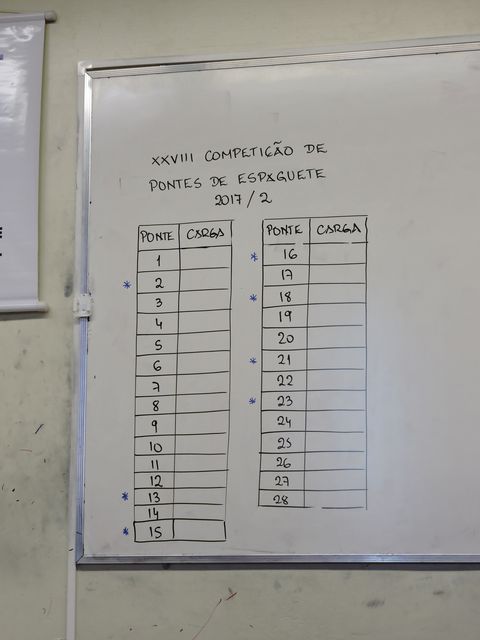 XXVIII COMPETIÇÃO DE
PONTES DE ESPAGUETE
2017/2
PONTE CARGA
1
* 2
3
4
5
6
7
8
9
10
11
12
* 13
14
* 15
PONTE CARGA
* 16
17
* 18
19
20
* 21
22
* 23
24
25
26
27
28